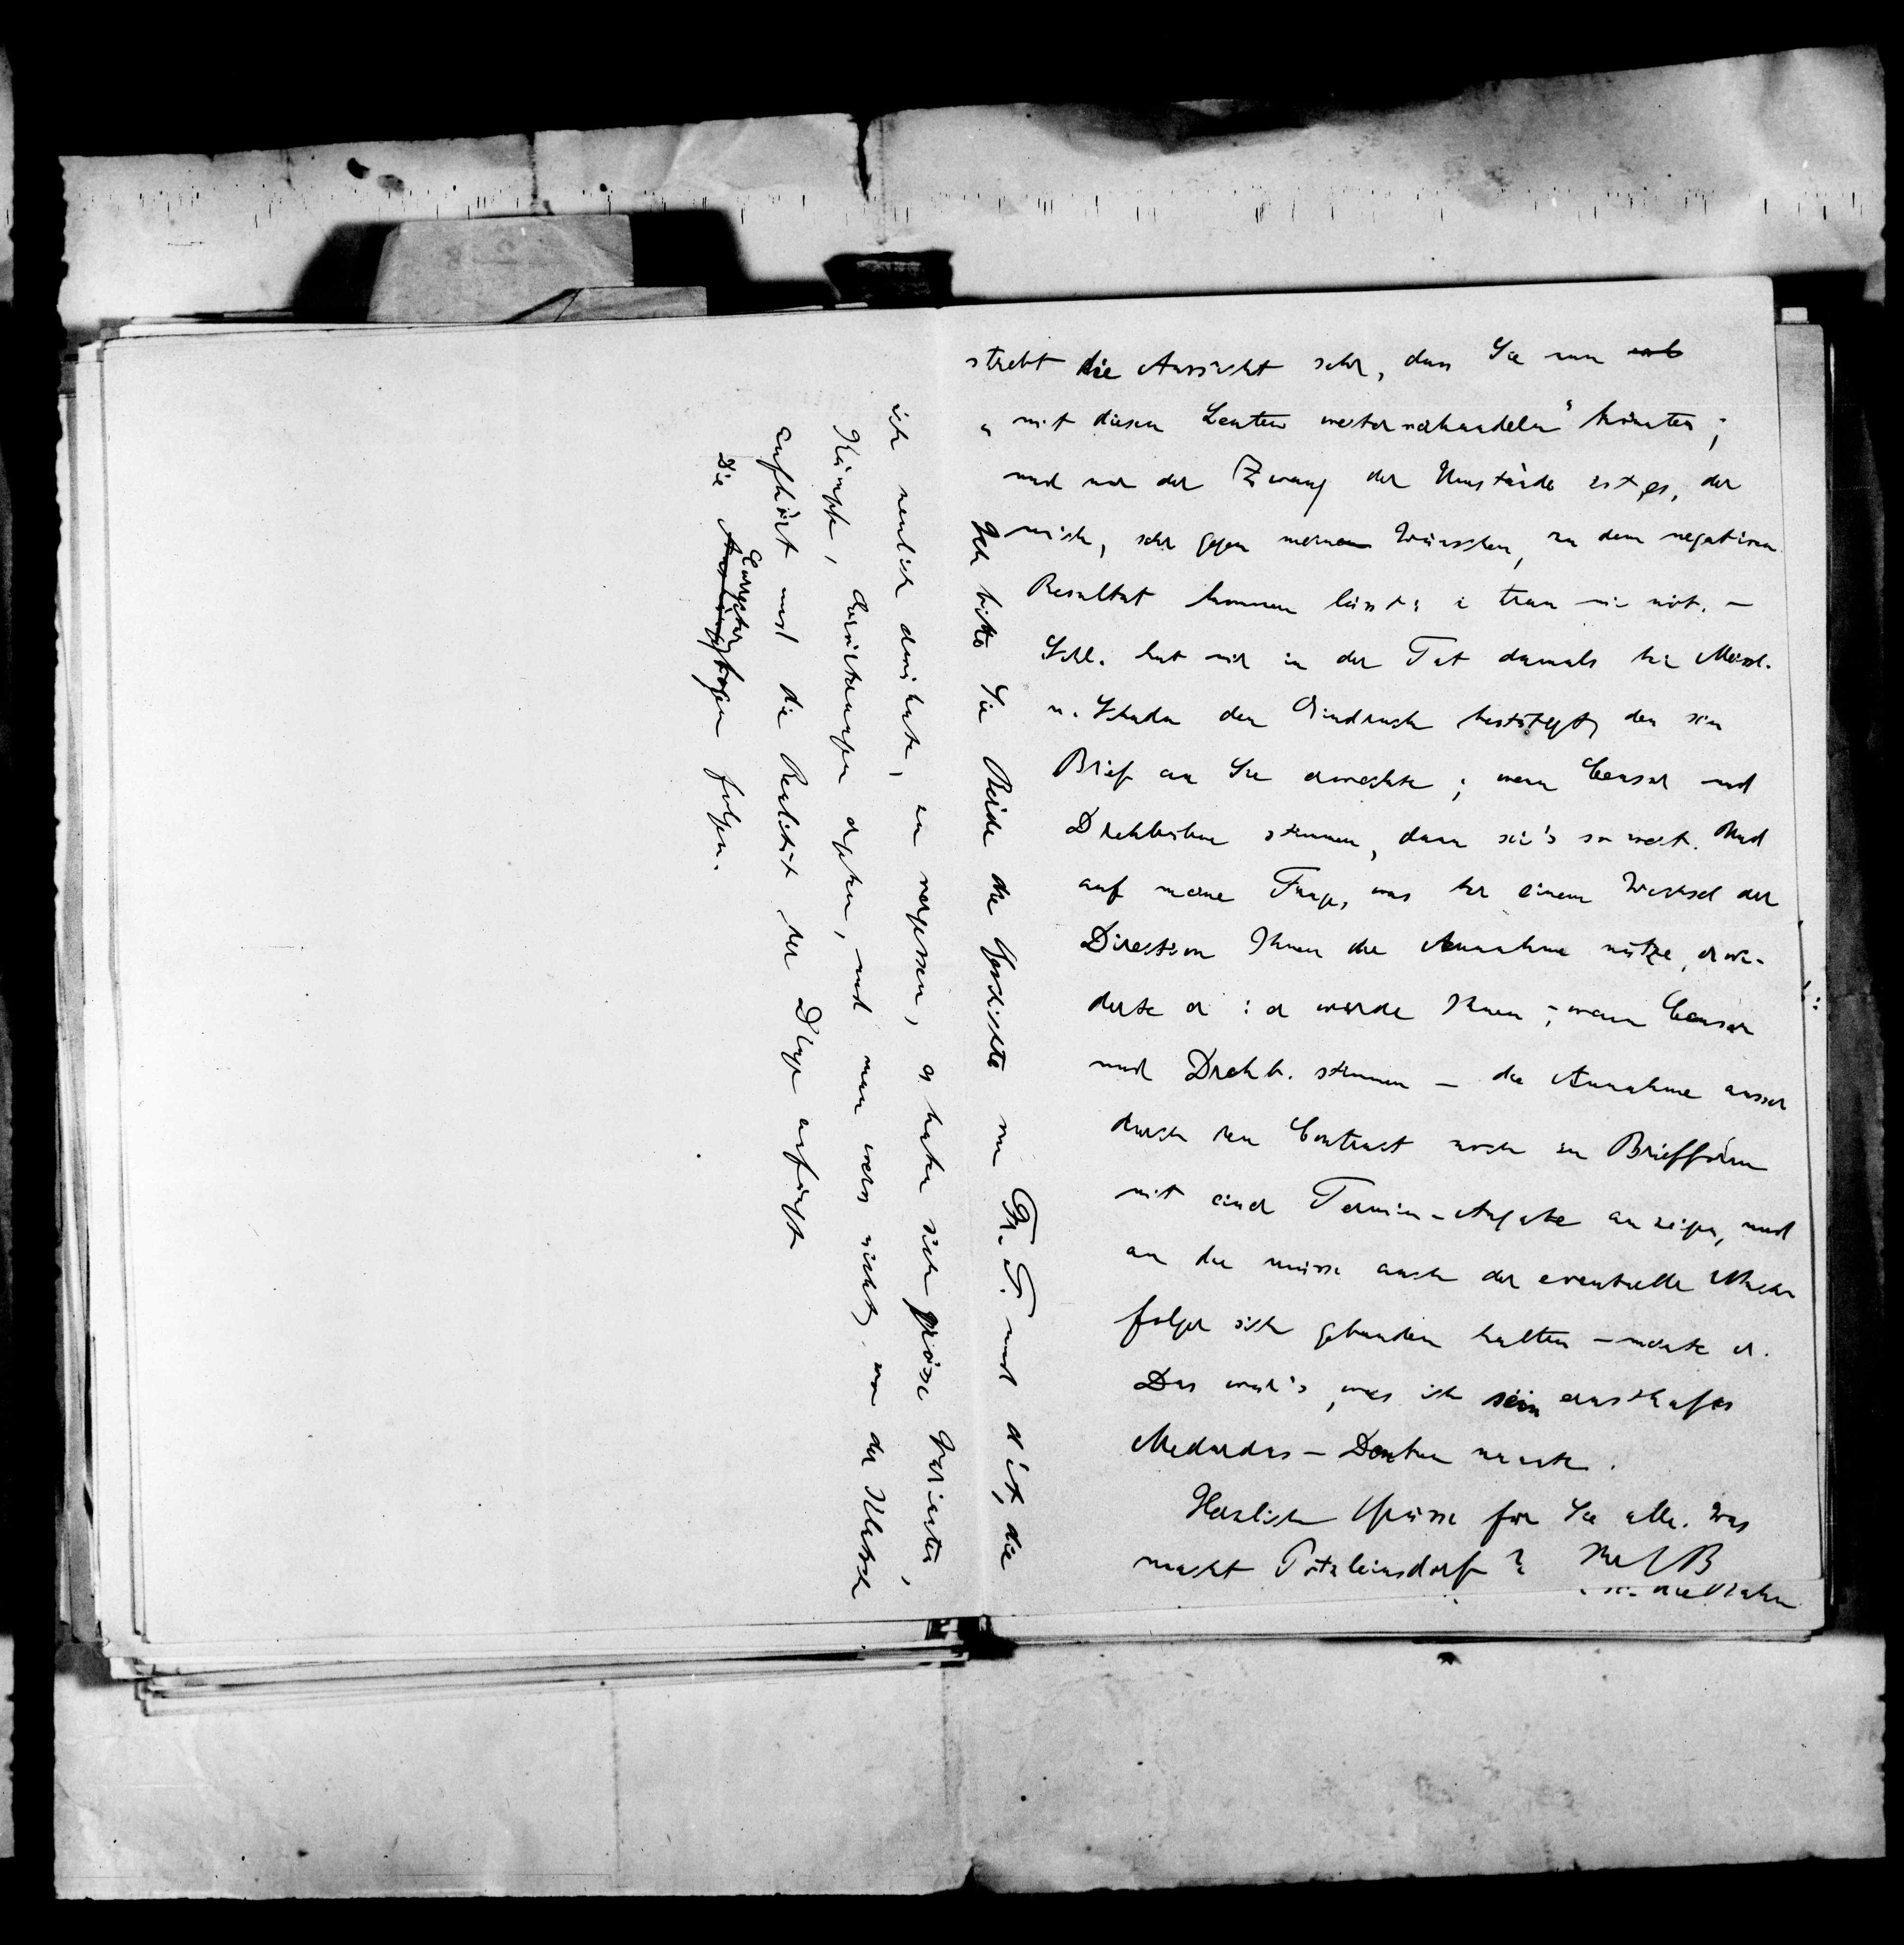 strebt die Aussicht sehr, dass Sie nun
„mit diesen Leuten weiterverhandeln“ könnten;
und nur der Zwang der Umstände ist es, der
mich, sehr gegen meinen Wünschen, zu dem negativen
Resultat kommen lässt: i trau mi nöt. –
Schl. hat mir in der Tat damals bei
u. den Eindruck bestätigt, den sein
Brief an Sie erweckte; wenn Censur und
Drehbühne stimmen, dann sei's so weit. Und
auf meine Frage, was bei einem Wechsel der
Direction Ihnen die Annahme nütze, erwi-
derte er: er werde Ihnen – wenn Censur
und Drehb. stimmen – die Annahme ausser
durch den Contract noch in Briefform
mit einer Termin-Angabe anzeigen, und
an die müsse auch der eventuelle Nach
folger sich gebunden halten – meinte er.
Das war's, was ich sein ernsthaftes
Medardus-Denken nannte.
Herzliche Grüsse für Sie alle. Was
macht Pötzleinsdorf? Ihr RB
Ich bitte Sie Beide die Geschichte von Fr. T. und d it, die
ich neulich andeutete, zu vergessen, es haben sich grosse Varianten,
Kämpfe, Bereicherungen ergeben, und man weiss nicht, wo der Klatsch
aufhört und die Realität der Dinge anfängt
Die Correcturbogen folgen.